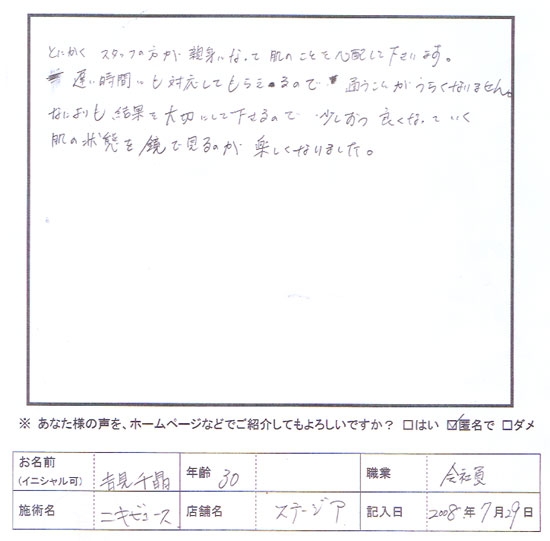 とにかく スタッフの方が 親身になって 肌のことを心配して下さいます。
遅い時間にも対応してもらえるので 通うことがつらくなりません。
なによりも 結果を大切にして下さるので 少しずつ 良くなっていく
肌の状態を鏡で見るのが 楽しくなりました。
※ あなた様の声を、ホームページなどでご紹介してもよろしいですか? □はい ☑匿名で □ダメ
お名前
(イニシャル可) 吉見千晶 年齢 30 職業 会社員
施術名 ニキビュース 店舗名 ステージア 記入日 2008年7月29日